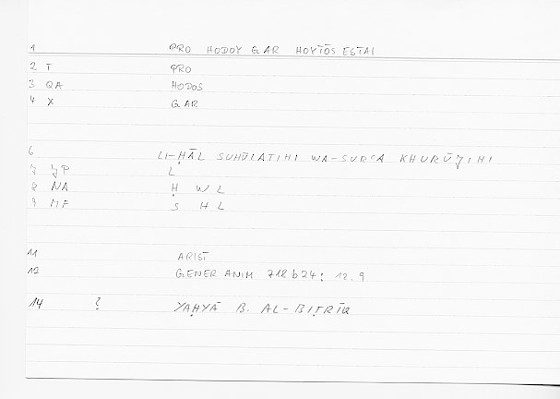 1 PRO HODOY GAR HOYTŌS ESTAI
2 T PRO
3 QA HODOS
4 X GAR
6 LI-ḤĀL SUHŪLATIHI WA-SURʿA KHURŪǦIHI
7 ǦP L
8 NA Ḥ W L
9 MF S H L
11 ARIST
12 GENER ANIM 718b24; 12.9
14 ? YAḤYĀ B. AL-BIṬRĪQ